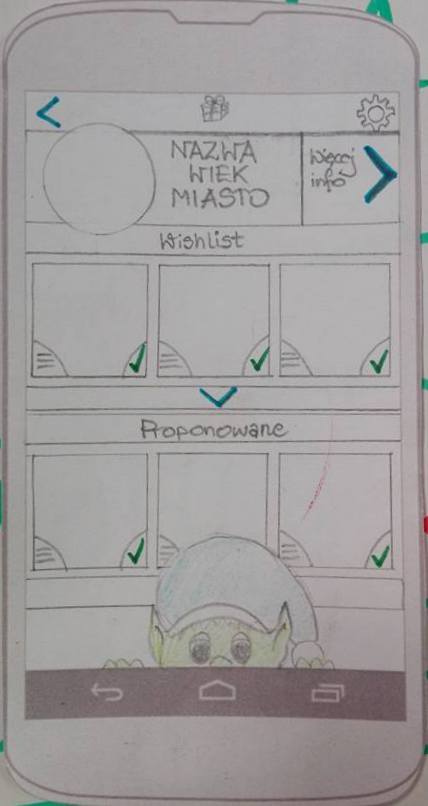 NAZWA
WIEK
MIASTO
Więcej
info
Wishlist
Proponowane